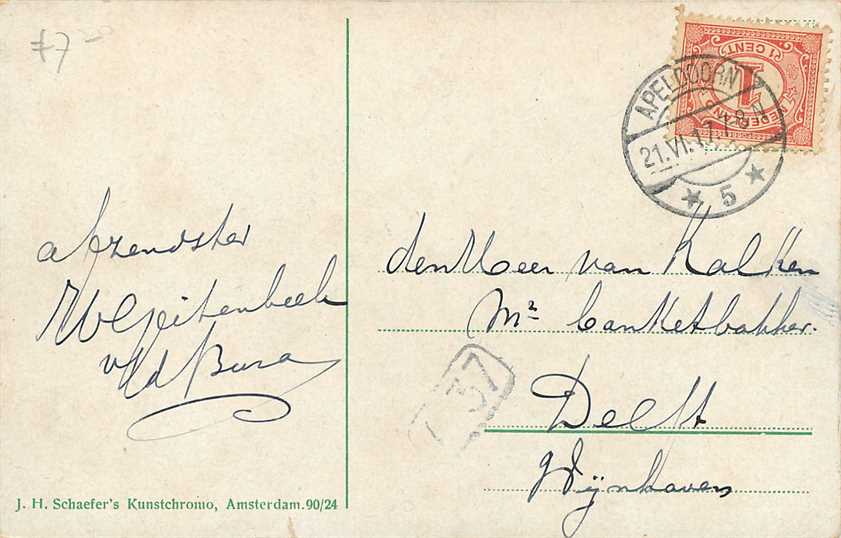 f7-
1 CENT
NEDERLAND
APELDOORN
21.VI.17. 7-8 N
5
afzendster
den Heer van Kalken
Mr Banketbakker.
37
Delft
Wijnhaven
J. H. Schaefer's Kunstchromo, Amsterdam. 90/24